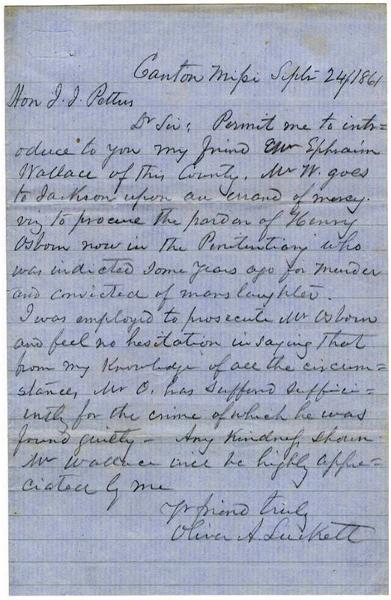 Canton Mipi Sept 24/1861
Hon J. J. Pettus
Dr Sir; Permit me to intro=
duce to you my friend Mr Ephraim
Wallace of this County. Mr W. goes
to Jackson upon an errand of mercy
viz to procure the pardon of Henry
Osborn now in the Penitentiary who
was indicted some years ago for murder
and convicted of manslaughter.
I was employed to prosecute Mr Osborn
and feel no hesitation in saying that
from my Knowledge of all the circum=
stances, Mr O. has sufferd suffici=
ently for the crime of which he was
found guilty - Any Kindness shown
Mr Wallace will be highly appre=
ciated by me
Yr friend truly
Oliver A Luckett